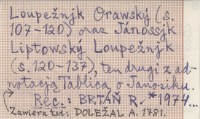 Loupežnjk Orawský (s.
107-120) oraz Jánossjk
Liptowský Loupežnjk
(s. 120-137), ten drugi z ad-
notacją Tablica o Janosiku.
Rec.: BRTÁŇ R. *1974...
Zawiera też: DOLEŽAL A. 1791.